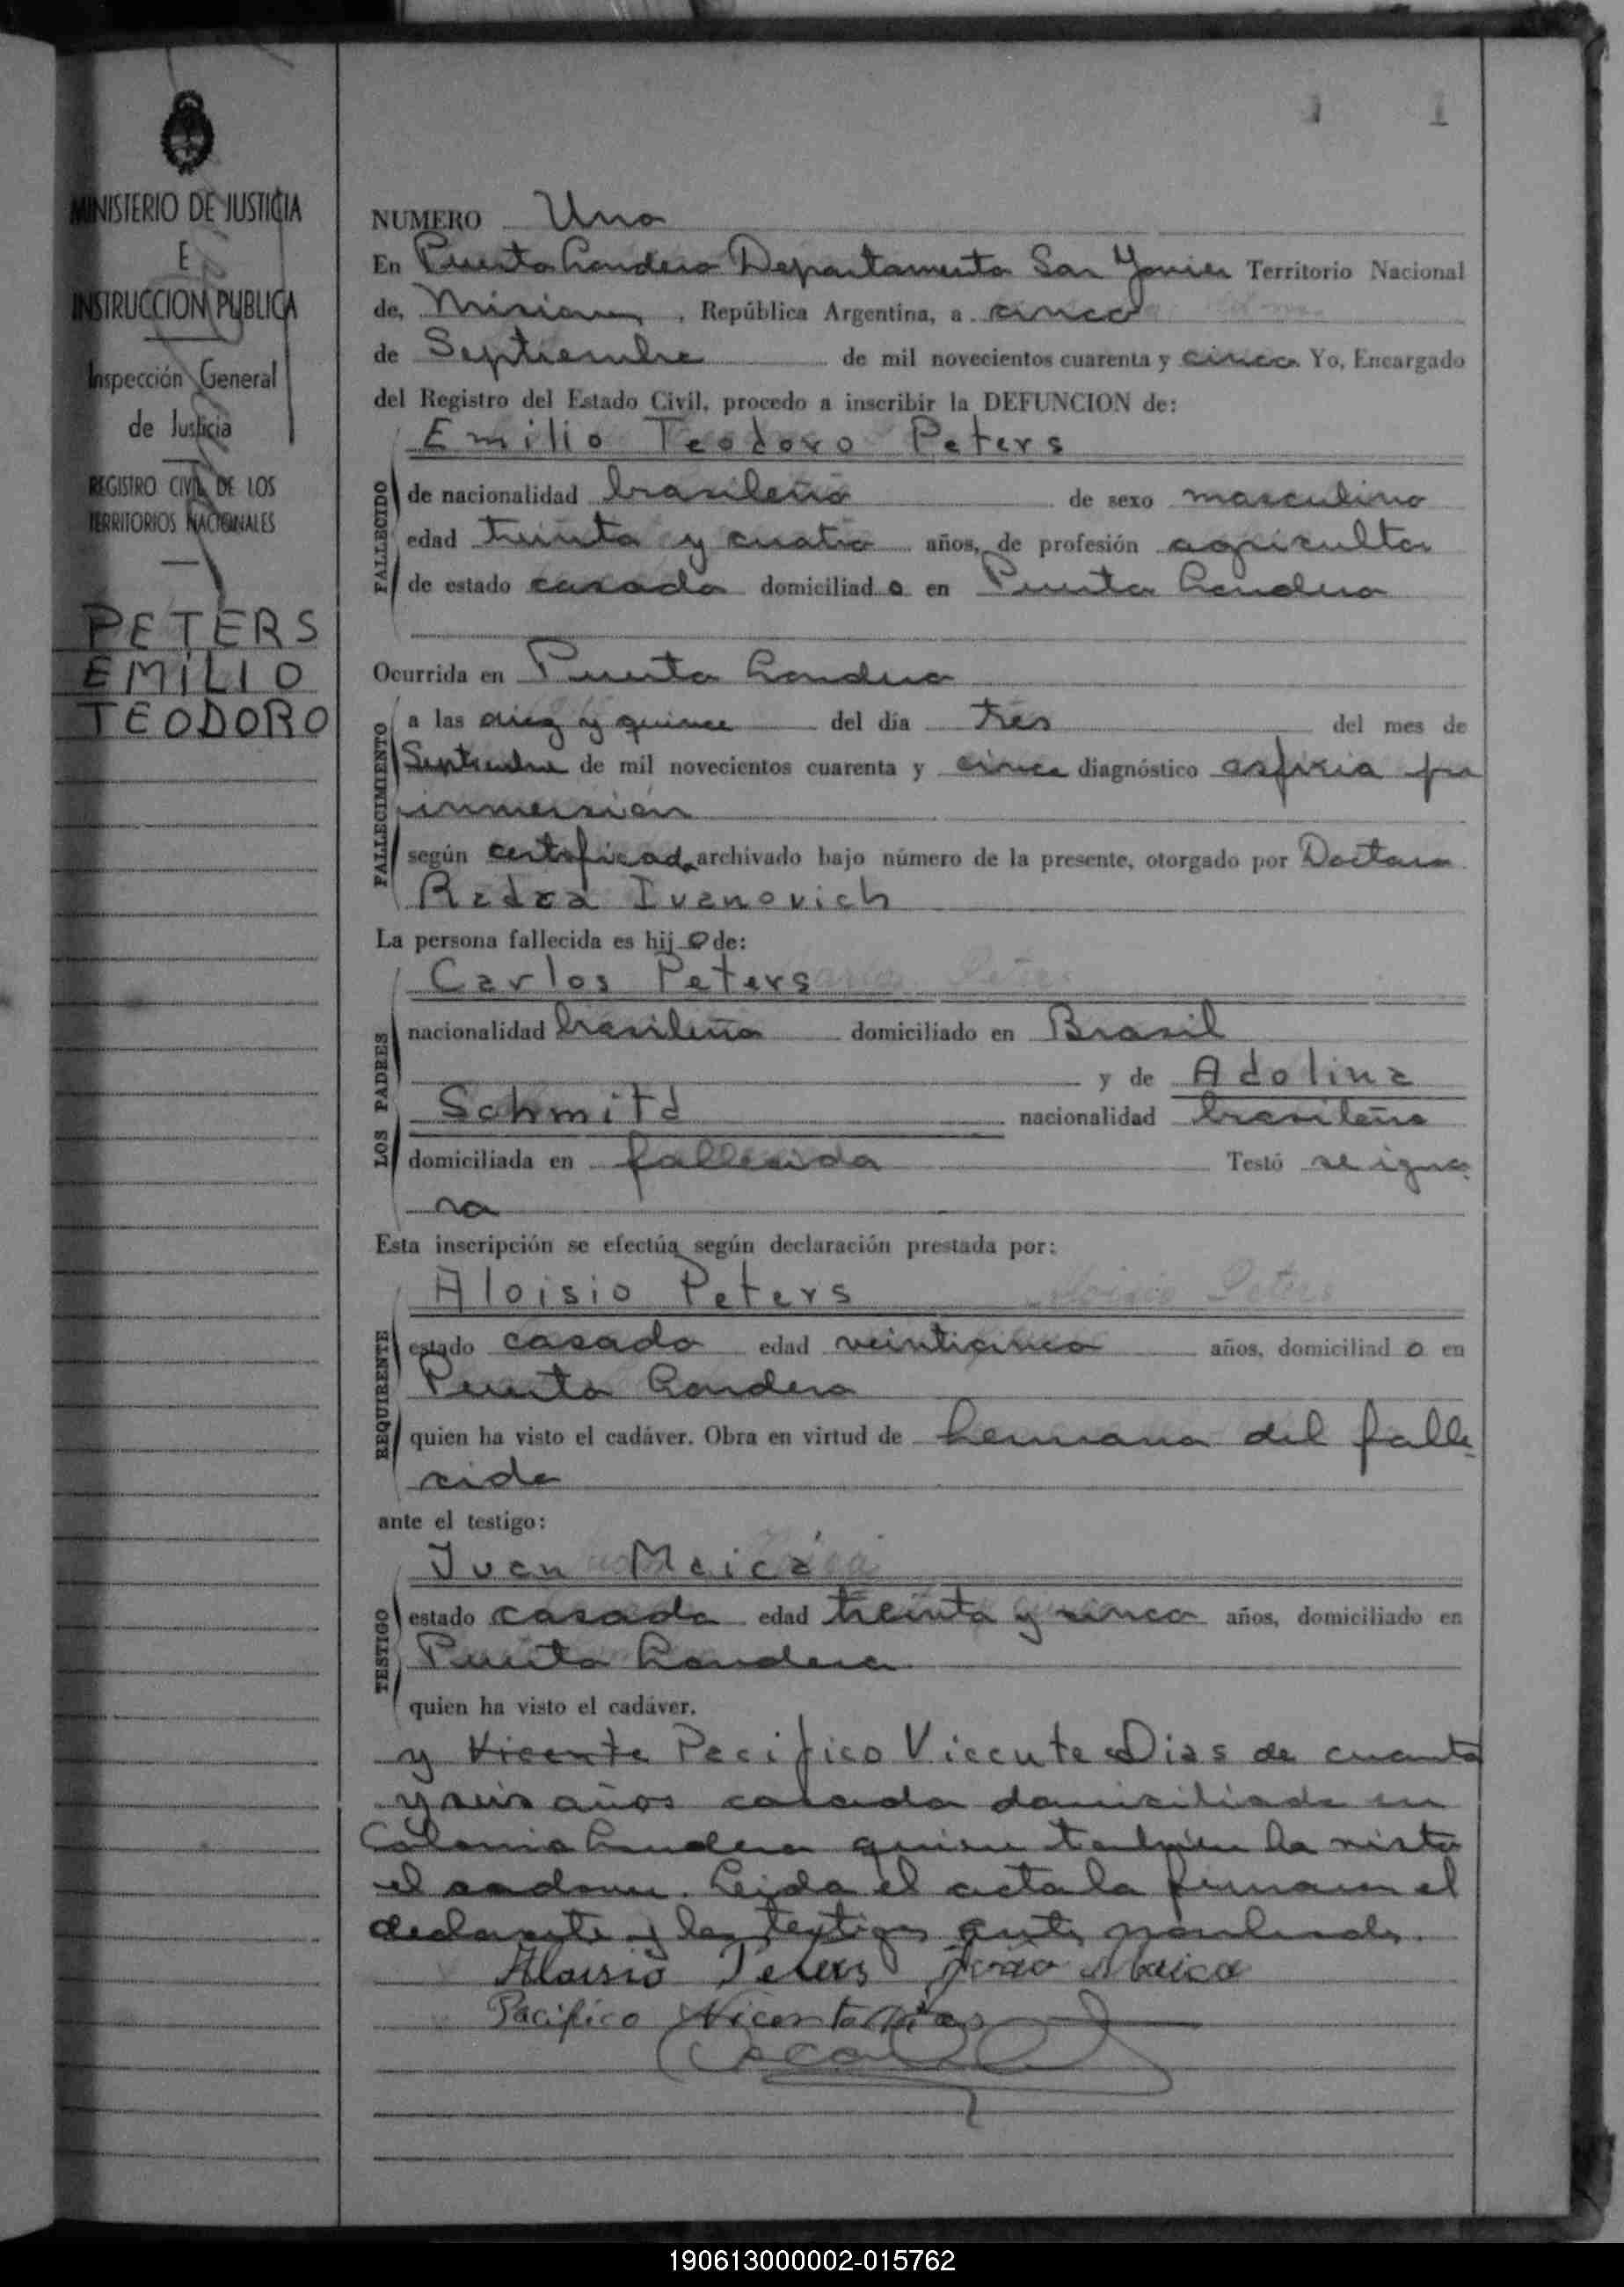 1 1
MINISTERIO DE JUSTICIA
E
INSTRUCCION PUBLICA
Inspección General
de Justicia
REGISTRO CIVIL DE LOS
TERRITORIOS NACIONALES
PETERS
EMILIO
TEODORO
NUMERO Uno
En Puerto Londero Departamento San Javier Territorio Nacional
de, Misiones, República Argentina, a cinco
de Septiembre de mil novecientos cuarenta y cinco Yo, Encargado
del Registro del Estado Civil, procedo a inscribir la DEFUNCION de:
Emilio Teodoro Peters
FALLECIDO
de nacionalidad brasileño de sexo masculino
edad treinta y cuatro años, de profesión agricultor
de estado casado domiciliado en Puerto Londero
Ocurrida en Puerto Londero
FALLECIMIENTO
a las diez y quince del día tres del mes de
Septiembre de mil novecientos cuarenta y cinco diagnóstico asfixia por
inmersión
según certificado archivado bajo número de la presente, otorgado por Doctora
Radza Ivanovich
La persona fallecida es hijo de:
Carlos Peters
LOS PADRES
nacionalidad brasileña domiciliado en Brasil
y de Adolina
Schmitd nacionalidad brasileña
domiciliada en fallecida Testó se igno
ra
Esta inscripción se efectúa según declaración prestada por:
Aloisio Peters
REQUIRENTE
estado casado edad veinticinco años, domiciliado en
Puerto Londero
quien ha visto el cadáver. Obra en virtud de hermano del falle
cido
ante el testigo:
Juan Maicá
TESTIGO
estado casado edad treinta y cinco años, domiciliado en
Puerto Londero
quien ha visto el cadáver.
y Vicente Pacifico Viccute Dias de cuarenta
y seis años casado domiciliado en
Colonia Londero quien tambien ha visto
el cadaver. Leida el acta la firmaron el
declarante y los testigos ante nombrados.
Aloisio Peters João Maica
Pacifico Vicente Dias
190613000002-015762